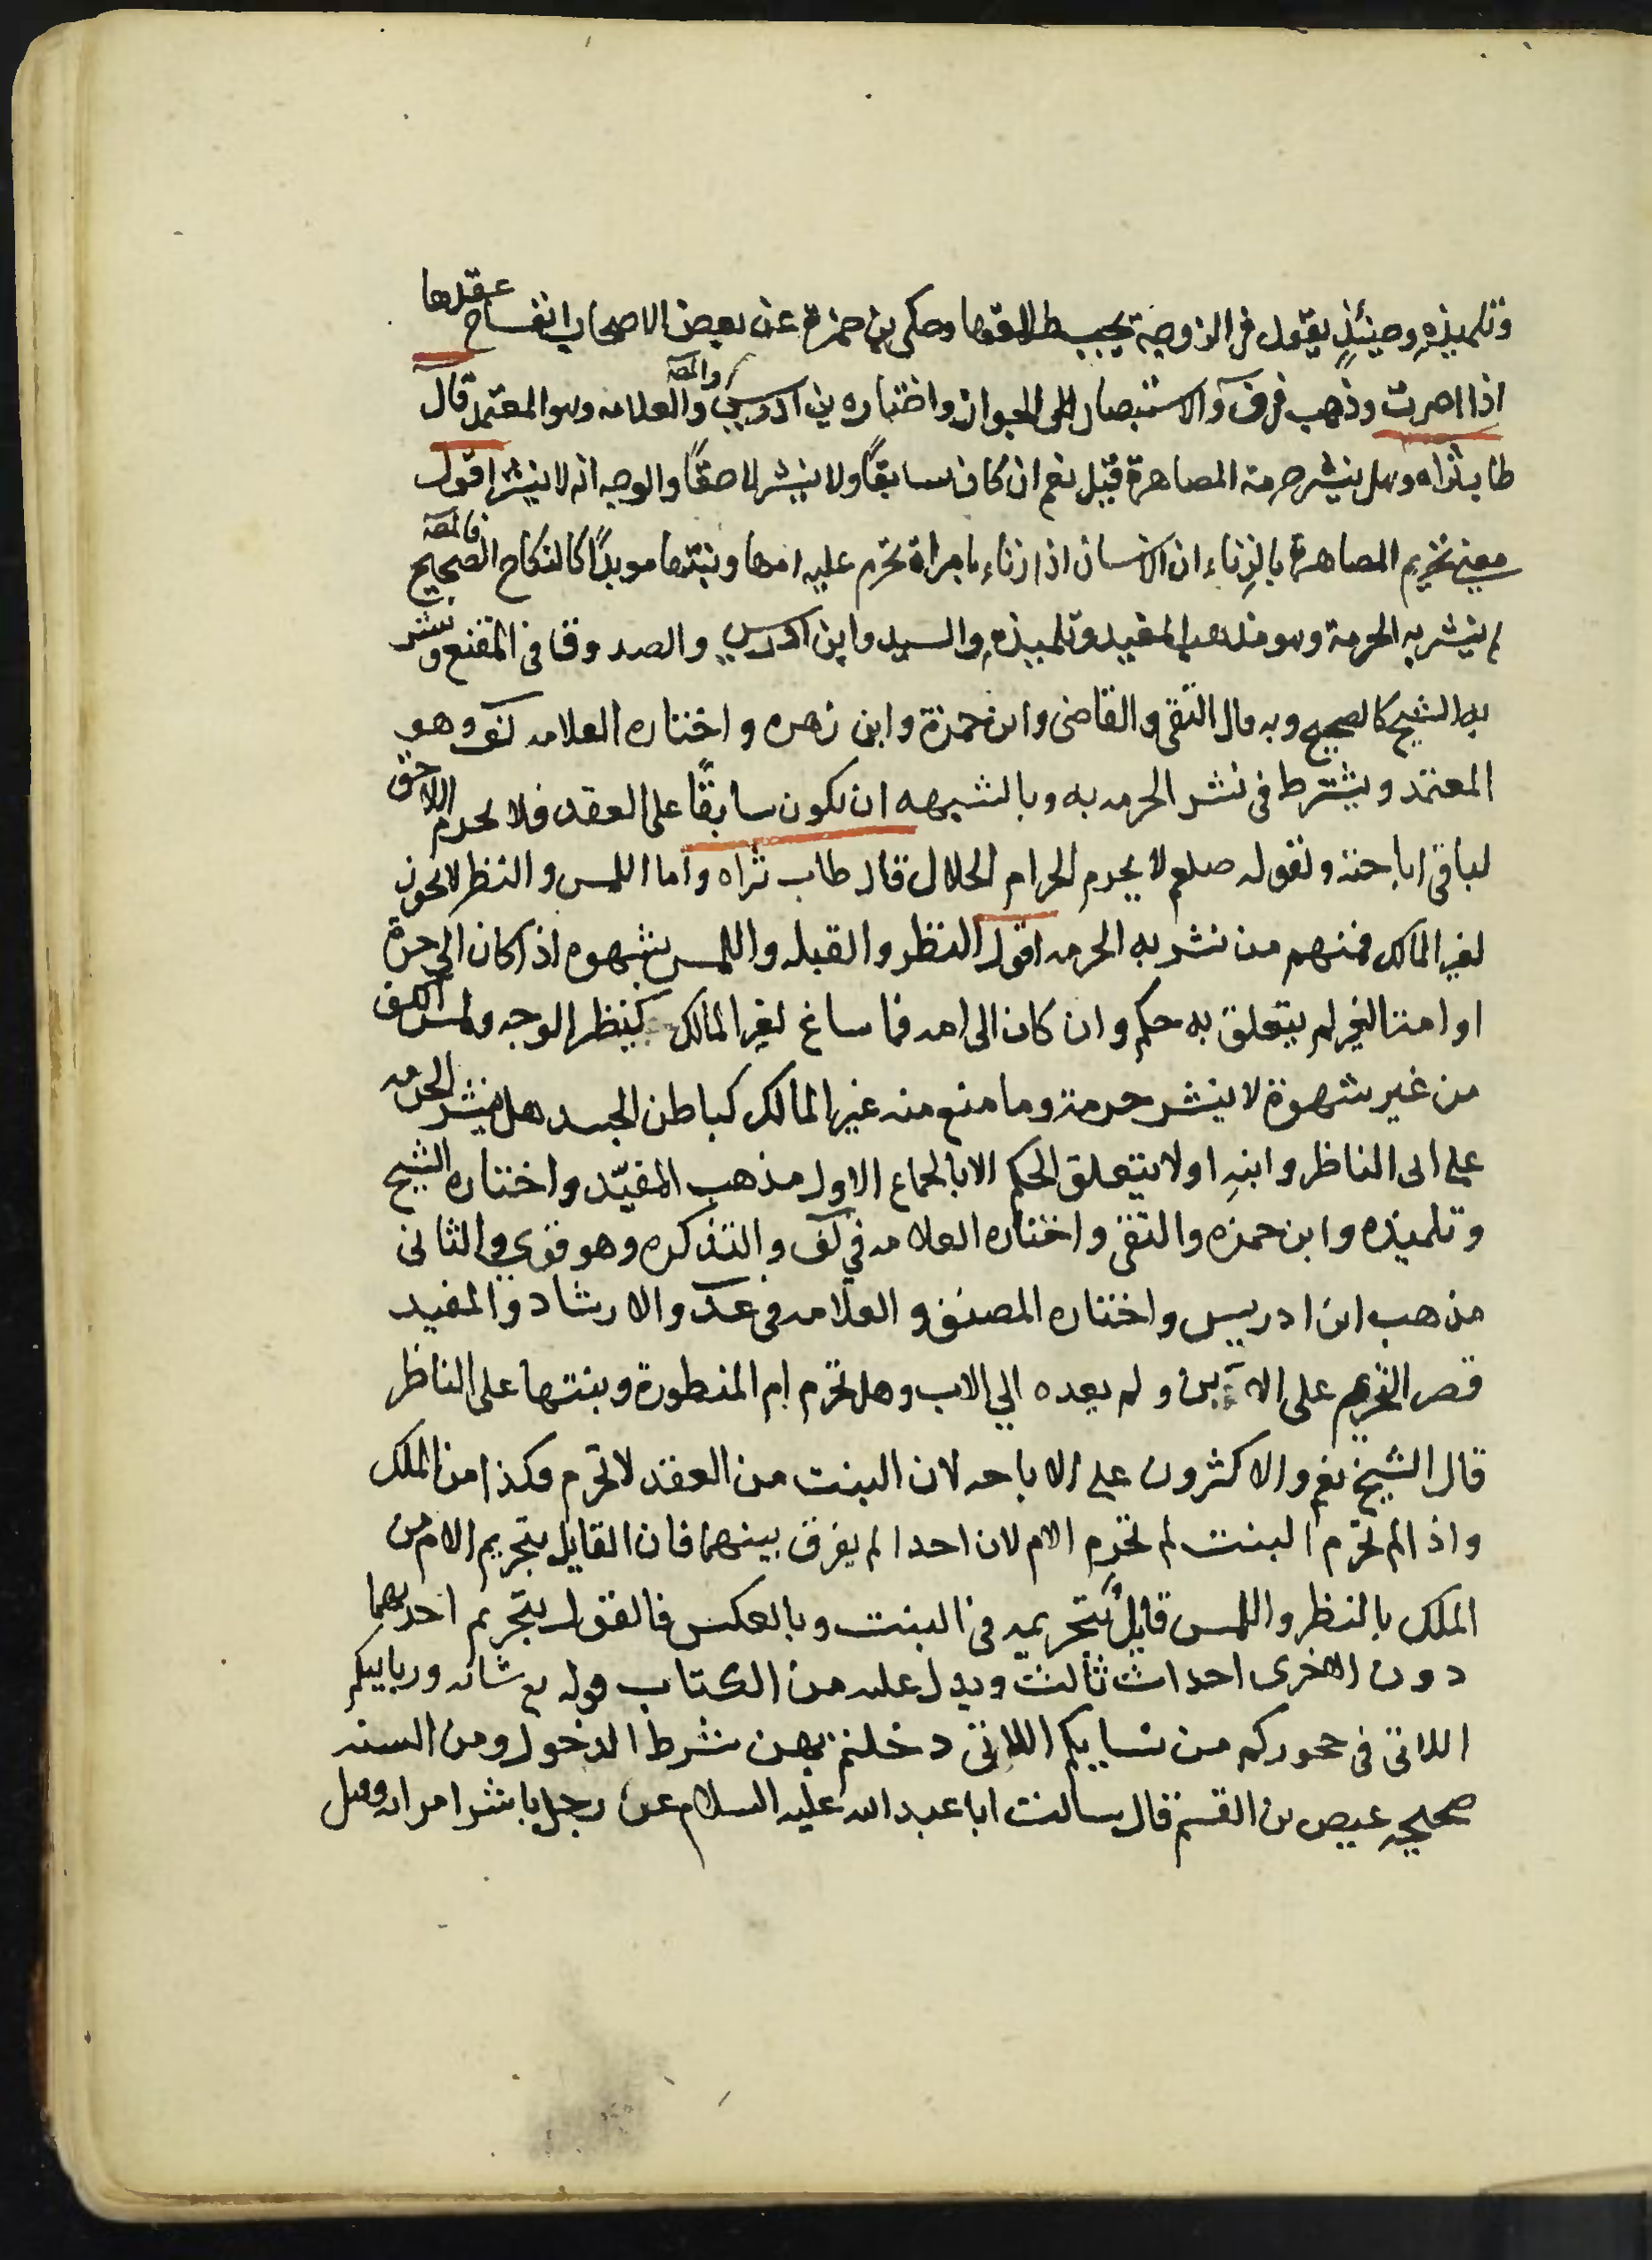 وتلميذهِ وحينئذٍ يقول في الزوجة يجب طلاقها وحكى بن حمزة عن بعض الاصحاب انفساخ عقدها
اذا اصرت وذهب في ف والاستبصار الى الجواز واختاره بن ادريس والمص والعلامه وهو المعتمد قال
طاب ثراه وهل ينشر حرمة المصاهرة قيل نعم ان كان سابقًا ولا ينشر لاحقًا والوجه انه لا ينشر اقول
معنى تحريم المصاهرة بالزناء ان الانسان اذا زناء بامراة تحرم عليه امها وبنتها مويدًا كالنكاح الصحيح فالمص
لم ينشر به الحرمة وهو مذهب المفيد وتلميذهِ والسيد وابن ادريس والصدوق في المقنع ونشر
به الشيخ كالصحيح وبه قال التقى والقاضى وابن حمزة وابن زهره واختاره العلامه لف وهو
المعتمد ويشترط فى نشر الحرمه به وبالشبهه ان يكون سابقًا على العقد فلا يحرم اللاحق
لباقى اباحته ولقوله صلعم لا يحرم الحرام الحلال قال طاب ثراه واما اللمس والنظر لا يجوز
لغير المالك فمنهم من نشر به الحرمه اقول النظر والقبله واللمس بشهوه اذا كان الى حرة
او امة الغير لم يتعلق به حكم وان كان الى امه فما ساغ لغير المالك كنظر الوجه ولمس الكف
من غير شهوة لا ينشر حرمة وما منع منه غير المالك كباطن الجسد هل ينشر الحرمه
على ابى الناظر وابنهِ اولا يتعلق الحكم الا بالجماع الاول مذهب المفيّد واختاره الشيخ
وتلميذه وابن حمزه والتقى واختاره العلامه في لف والتذكره وهو قوي والثانى
مذهب ابن ادريس واختاره المصنف والعلامه فى عد والارشاد والمفيد
قصر التحريم على الابن ولم يعده الي الاب وهل تحرم ام المنظورة وبنتها على الناظر
قال الشيخ نعم والاكثرون على الاباحه لان البنت من العقد لا تحرم فكذا من الملك
واذا لم تحرم البنت لم تحرم الام لان احدا لم يفرق بينهما فان القايل بتحريم الام من
الملك بالنظر واللمس قايلٌ بتحريمه فى البنت وبالعكس فالقول بتحريم احديهما
دون الاخرى احداث ثالث ويدل عليه من الكتاب قوله تع شانه وربايبكم
اللاتى فى حجوركم من نسايكم اللاتى دخلتم بهن شرط الدخول ومن السنه
صحيحه عيص بن القسم قال سالت ابا عبد الله عليه السلام عن رجل باشر امراه وقبل